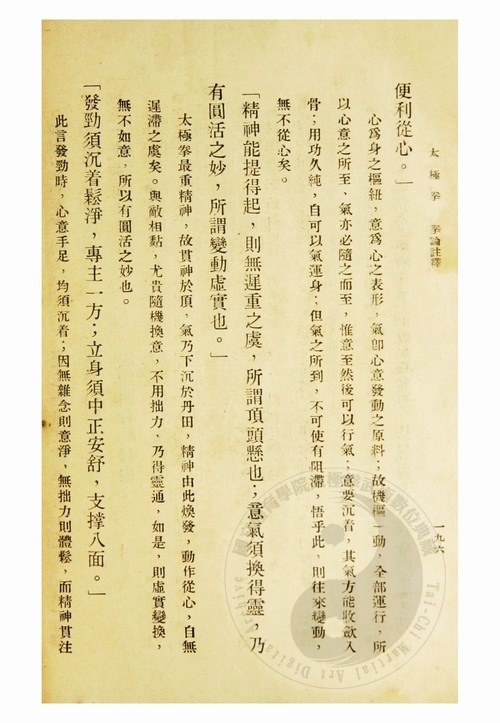 太極拳　拳論註釋
一九六
便利從心。」
心爲身之樞紐，意爲心之表形，氣卽心意發動之原料；故機樞一動，全部運行，所
以心意之所至、氣亦必隨之而至，惟意至然後可以行氣；意要沉着，其氣方能收歛入
骨；用功久純，自可以氣運身；但氣之所到，不可使有阻滯，悟乎此，則往來變動，
無不從心矣。
「精神能提得起，則無遲重之虞，所謂頂頭懸也；意氣須換得靈，乃
有圓活之妙，所謂變動虛實也。」
太極拳最重精神，故貫神於頂，氣乃下沉於丹田，精神由此煥發，動作從心，自無
遲滯之虞矣。與敵相黏，尤貴隨機換意，不用拙力，乃得靈通，如是，則虛實變換，
無不如意，所以有圓活之妙也。
「發勁須沉着鬆淨，專主一方；立身須中正安舒，支撐八面。」
此言發勁時，心意手足，均須沉着；因無雜念則意淨，無拙力則體鬆，而精神貫注
Tai-Chi Martial Art Digital Archive